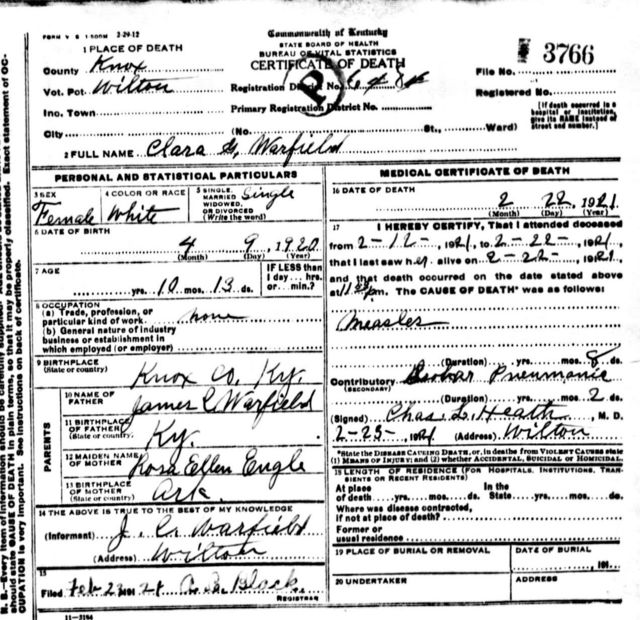 FORM V. S. 1-500M 2-29-12
Commonwealth of Kentucky
STATE BOARD OF HEALTH
BUREAU OF VITAL STATISTICS
CERTIFICATE OF DEATH
1 PLACE OF DEATH
County Knox
Vot. Pct Wilton
Inc. Town
City
Registration District No. 6484
Primary Registration District No.
(No. St., Ward)
File No. 3766
Registered No.
[If death occurred in a
hospital or institution,
give its NAME instead of
street and number.]
2 FULL NAME Clara G. Warfield
PERSONAL AND STATISTICAL PARTICULARS
3 SEX
Female
4 COLOR OR RACE
White
5 SINGLE,
MARRIED
WIDOWED,
OR DIVORCED
(Write the word)
Single
6 DATE OF BIRTH
4 9, 1920
(Month) (Day) (Year)
7 AGE
yrs. 10 mos. 13 ds.
IF LESS than
1 day... hrs.
or... min.?
8 OCCUPATION
(a) Trade, profession, or
particular kind of work none
(b) General nature of industry
business or establishment in
which employed (or employer)
9 BIRTHPLACE
(State or country)
Knox Co. Ky.
PARENTS
10 NAME OF
FATHER
James C Warfield
11 BIRTHPLACE
OF FATHER
(State or country)
Ky.
12 MAIDEN NAME
OF MOTHER
Rosa Ellen Engle
13 BIRTHPLACE
OF MOTHER
(State or country)
Ark.
14 THE ABOVE IS TRUE TO THE BEST OF MY KNOWLEDGE
(Informant) J. C. Warfield
(Address) Wilton
15
Filed Feb 23 191 21 Black
REGISTRAR
11-3184
MEDICAL CERTIFICATE OF DEATH
16 DATE OF DEATH
2 22, 1921
(Month) (Day) (Year)
17 I HEREBY CERTIFY, That I attended deceased
from 2-12-, 1921, to 2-22-, 1921,
that I last saw her alive on 2-22-, 1921,
and that death occurred on the date stated above
at 11 pm. The CAUSE OF DEATH* was as follows:
Measles
(Duration) yrs. mos. 8 ds.
Contributory Lobar Pneumonia
(SECONDARY)
(Duration) yrs. mos. 2 ds.
(Signed) Chas. L. Heath, M. D.
2-25-, 1921 (Address) Wilton
*State the DISEASE CAUSING DEATH, or, in deaths from VIOLENT CAUSES state
(1) MEANS OF INJURY; and (2) whether ACCIDENTAL, SUICIDAL or HOMICIDAL.
18 LENGTH OF RESIDENCE (FOR HOSPITALS, INSTITUTIONS, TRAN-
SIENTS OR RECENT RESIDENTS)
At place In the
of death yrs. mos. ds. State yrs. mos. ds.
Where was disease contracted,
if not at place of death?
Former or
usual residence
19 PLACE OF BURIAL OR REMOVAL
DATE OF BURIAL
, 191
20 UNDERTAKER
ADDRESS
should state CAUSE OF DEATH in plain terms, so that it may be properly classified. Exact statement of OC-
CUPATION is very important. See instructions on back of certificate.